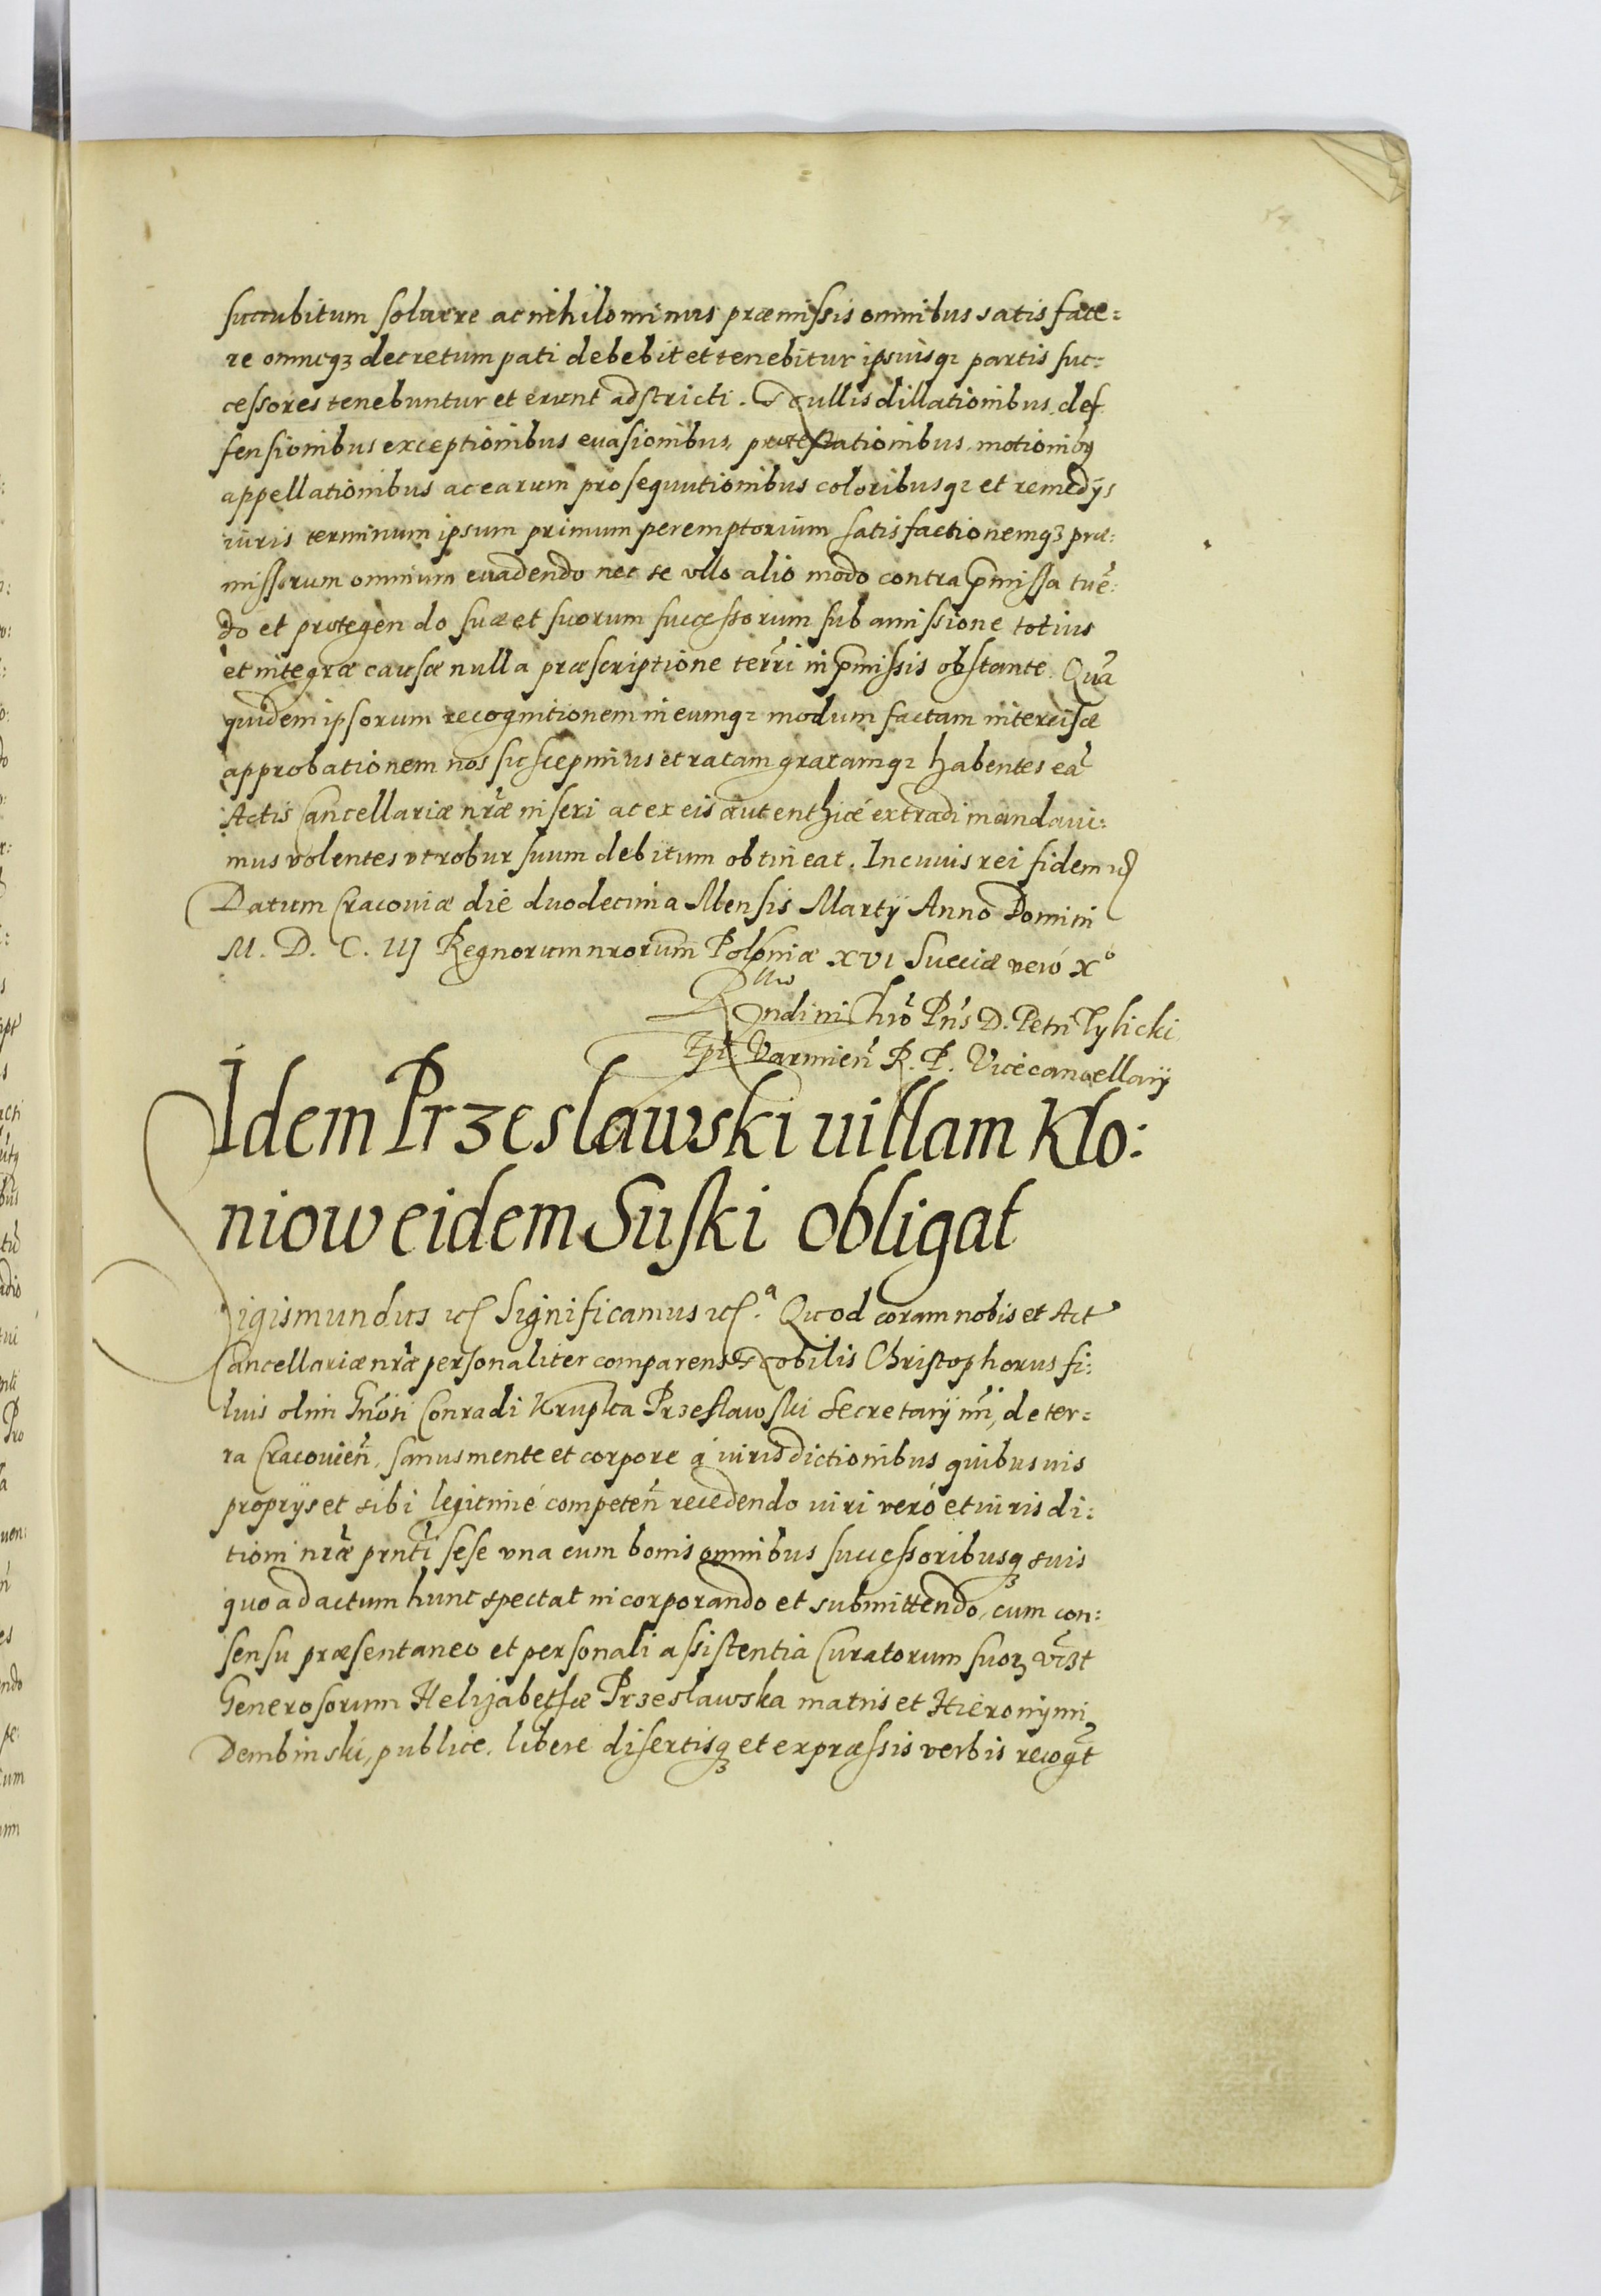 succubitum soluere ac nihilominus præmissis omnibus satis face=
re omneq3 decretum pati debebit et tenebitur ipsiusq3 partis suc=
cessores tenebuntur et erunt adstricti. Nullis dillationibus, def
fensionibus exceptionibus euasionibus, protestationibus, motionibq
appellationibus ac earum prosequutionibus coloribusq3 et remedijs
iuris terminum ipsum primum peremptorium satisfactionemq3 præ=
missorum omnium euadendo nec se vllo alio modo contra p̄missa tuē=
do et protegendo suæ et suorum successorum sub amissione totius
et integræ causæ nulla præscriptione terr̃i in p̄missis obstante. Quã
quidem ipsorum recognitionem in eumq3 modum factam intercisæ
approbationem nos suscepimus et ratam gratamq3 habentes eã
Actis Cancellariæ nr̃æ inseri ac ex eis autenthicé extradi mandaui=
mus volentes vt robur suum debitum obtineat. In cuius rei fidem etc
Datum Cracouiæ die duodecima Mensis Martij Anno Domini
M. D. C. IIJ Regnorum nrorum Poloniæ XVI Sueciæ veró Xº
Rndi in Chrõ Pñs D. Petri Tylicki
Epi Varmieñ R. P. Vicecancellarij
Idem Przeslawski uillam Klo=
niow eidem Suski obligat
Sigismundus etc Significamus etc.ª Quod coram nobis et Act
Cancellariæ nr̃æ personaliter comparens Nobilis Christophorus fi=
lius olim Gnõsi Conradi Krupka Przeslawski Secretarij nri, de ter=
ra Cracouieñ, sanus mente et corpore á iurisdictionibus quibusuis
proprijs et sibi legitimé competeñ recedendo iuri veró et iurisdi=
tioni nr̃æ prnti sese vna cum bonis omnibus successoribusq3 suis
quo ad actum hunc spectat incorporando et submittendo, cum con=
sensu præsentaneo et personali assistentia Curatorum suoꝝ vi3t
Generosorum Helizabethæ Przeslawska matris et Hieronymi
Dembinski, publice, libere disertisq3 et expræssis verbis recogt